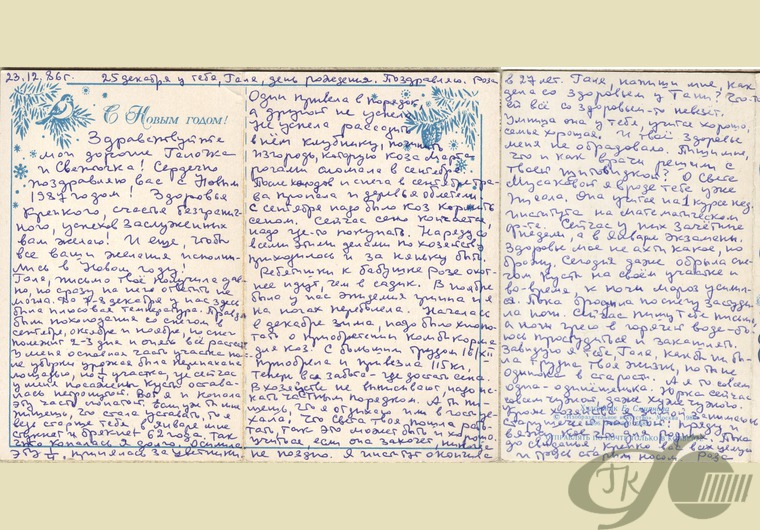 23.12.86г. 25 декабря у тебя, Галя, день рождения. Поздравляю. Роза
С Новым годом!
Здравствуйте
мои дорогие Галочка
и Светочка! Сердечно
поздравляю вас с Новым
1987 годом. Здоровья
крепкого, счастья безгранич-
ного, успехов заслуженных
вам желаю! И еще, чтобы
все ваши желания исполни-
лись в Новом году!
Галя, письмо твоё получила дав-
но, но сразу никого ответить не
могла. До 7-8 декабря у нас здесь
была плюсовая температура. Правда
были похолодания со снегом в
сентябре, октябре и ноябре, но снег
полежит 2-3 дня и опять всё растает
У меня основная часть участка пос-
ле уборки урожая была перекопана
лошадью, но
у меня посажены кусты остава-
лась нетронутой. Вот я и копала
эту часть лопатой. Галя, ты пи-
шешь, что стала уставать, то я
ведь старше тебя, в январе мне
стукнет и брякнет 62 года. Так
что копалась я долго. Осилила
эту, принялась за цветники.
Один привела в порядок,
а другой не успела.
Не успела рассадить
всем клубнику, починить
изгородь, которую коза Марта
рогами сломала в сентябре.
После холодов и снега в сентябре тра-
ва пропала и деревья облетели
С сентября надо было коз кормить
сеном. Сейчас сено кончается,
надо где-то покупать. Наряду со
всеми этими делами по хозяйству
приходилось и за няньку быть
Ребятишки к бабушке Розе охот-
нее идут, чем в садик. В ноябре
была у нас эпидемия гриппа и я
на ногах переболела. Началась
в декабре зима, надо было хлопо-
тать о приобретении комбикорма
для коз. С большим трудом
приобрела и привезла 115 кг,
теперь вся забота - где достать сена.
В хозяйстве не выписывают, надо ис-
кать частным порядком. А ты пи-
шешь, что я отдыхаю или в гости уе-
хала! Что Света твоя, пошла рабо-
тать, так это может быть и хорошо.
Учиться, если она захочет, никогда
не поздно. Я институт окончила
в 27 лет. Галя, напиши мне, как
дела со здоровьем у Тани? Что-то
ей всё со здоровьем-то не везёт.
Умница она у тебя, учится хорошо,
семья хорошая. И твоё здоровье
меня не обрадовало. Пиши мне,
что и как врачи решили с
твоей щитовидкой? О Свете
Мусатовой я вроде тебе уже
писала. Она учится на 1 курсе пед.
института на математическом
ф-те. Сейчас у них зачётные
недели, а в январе экзамены.
Здоровье моё не ахти какое, но
брожу. Сегодня даже обрыла сне-
гом кусты на своём участке и
во-время, к ночи мороз усилил-
ся. Пока бродила по снегу засуди-
ла ноги. Сейчас пишу тебе письмо,
а ноги грею в горячей воде - бо-
юсь простудиться и закашлять.
Завидую я тебе, Галя, как бы ни бы-
ла трудна твоя жизнь, но ты не
одинока в старости. А я-то совсем
одна-одинёшенька. Юрка сейчас
совсем чужой, даже хуже чужого.
Кроме хозяйства
старческой работой: пряду и
вяжу Пока
до свиданья. Крепко вас всех целую
и трусь старым носом. Роза
ГК